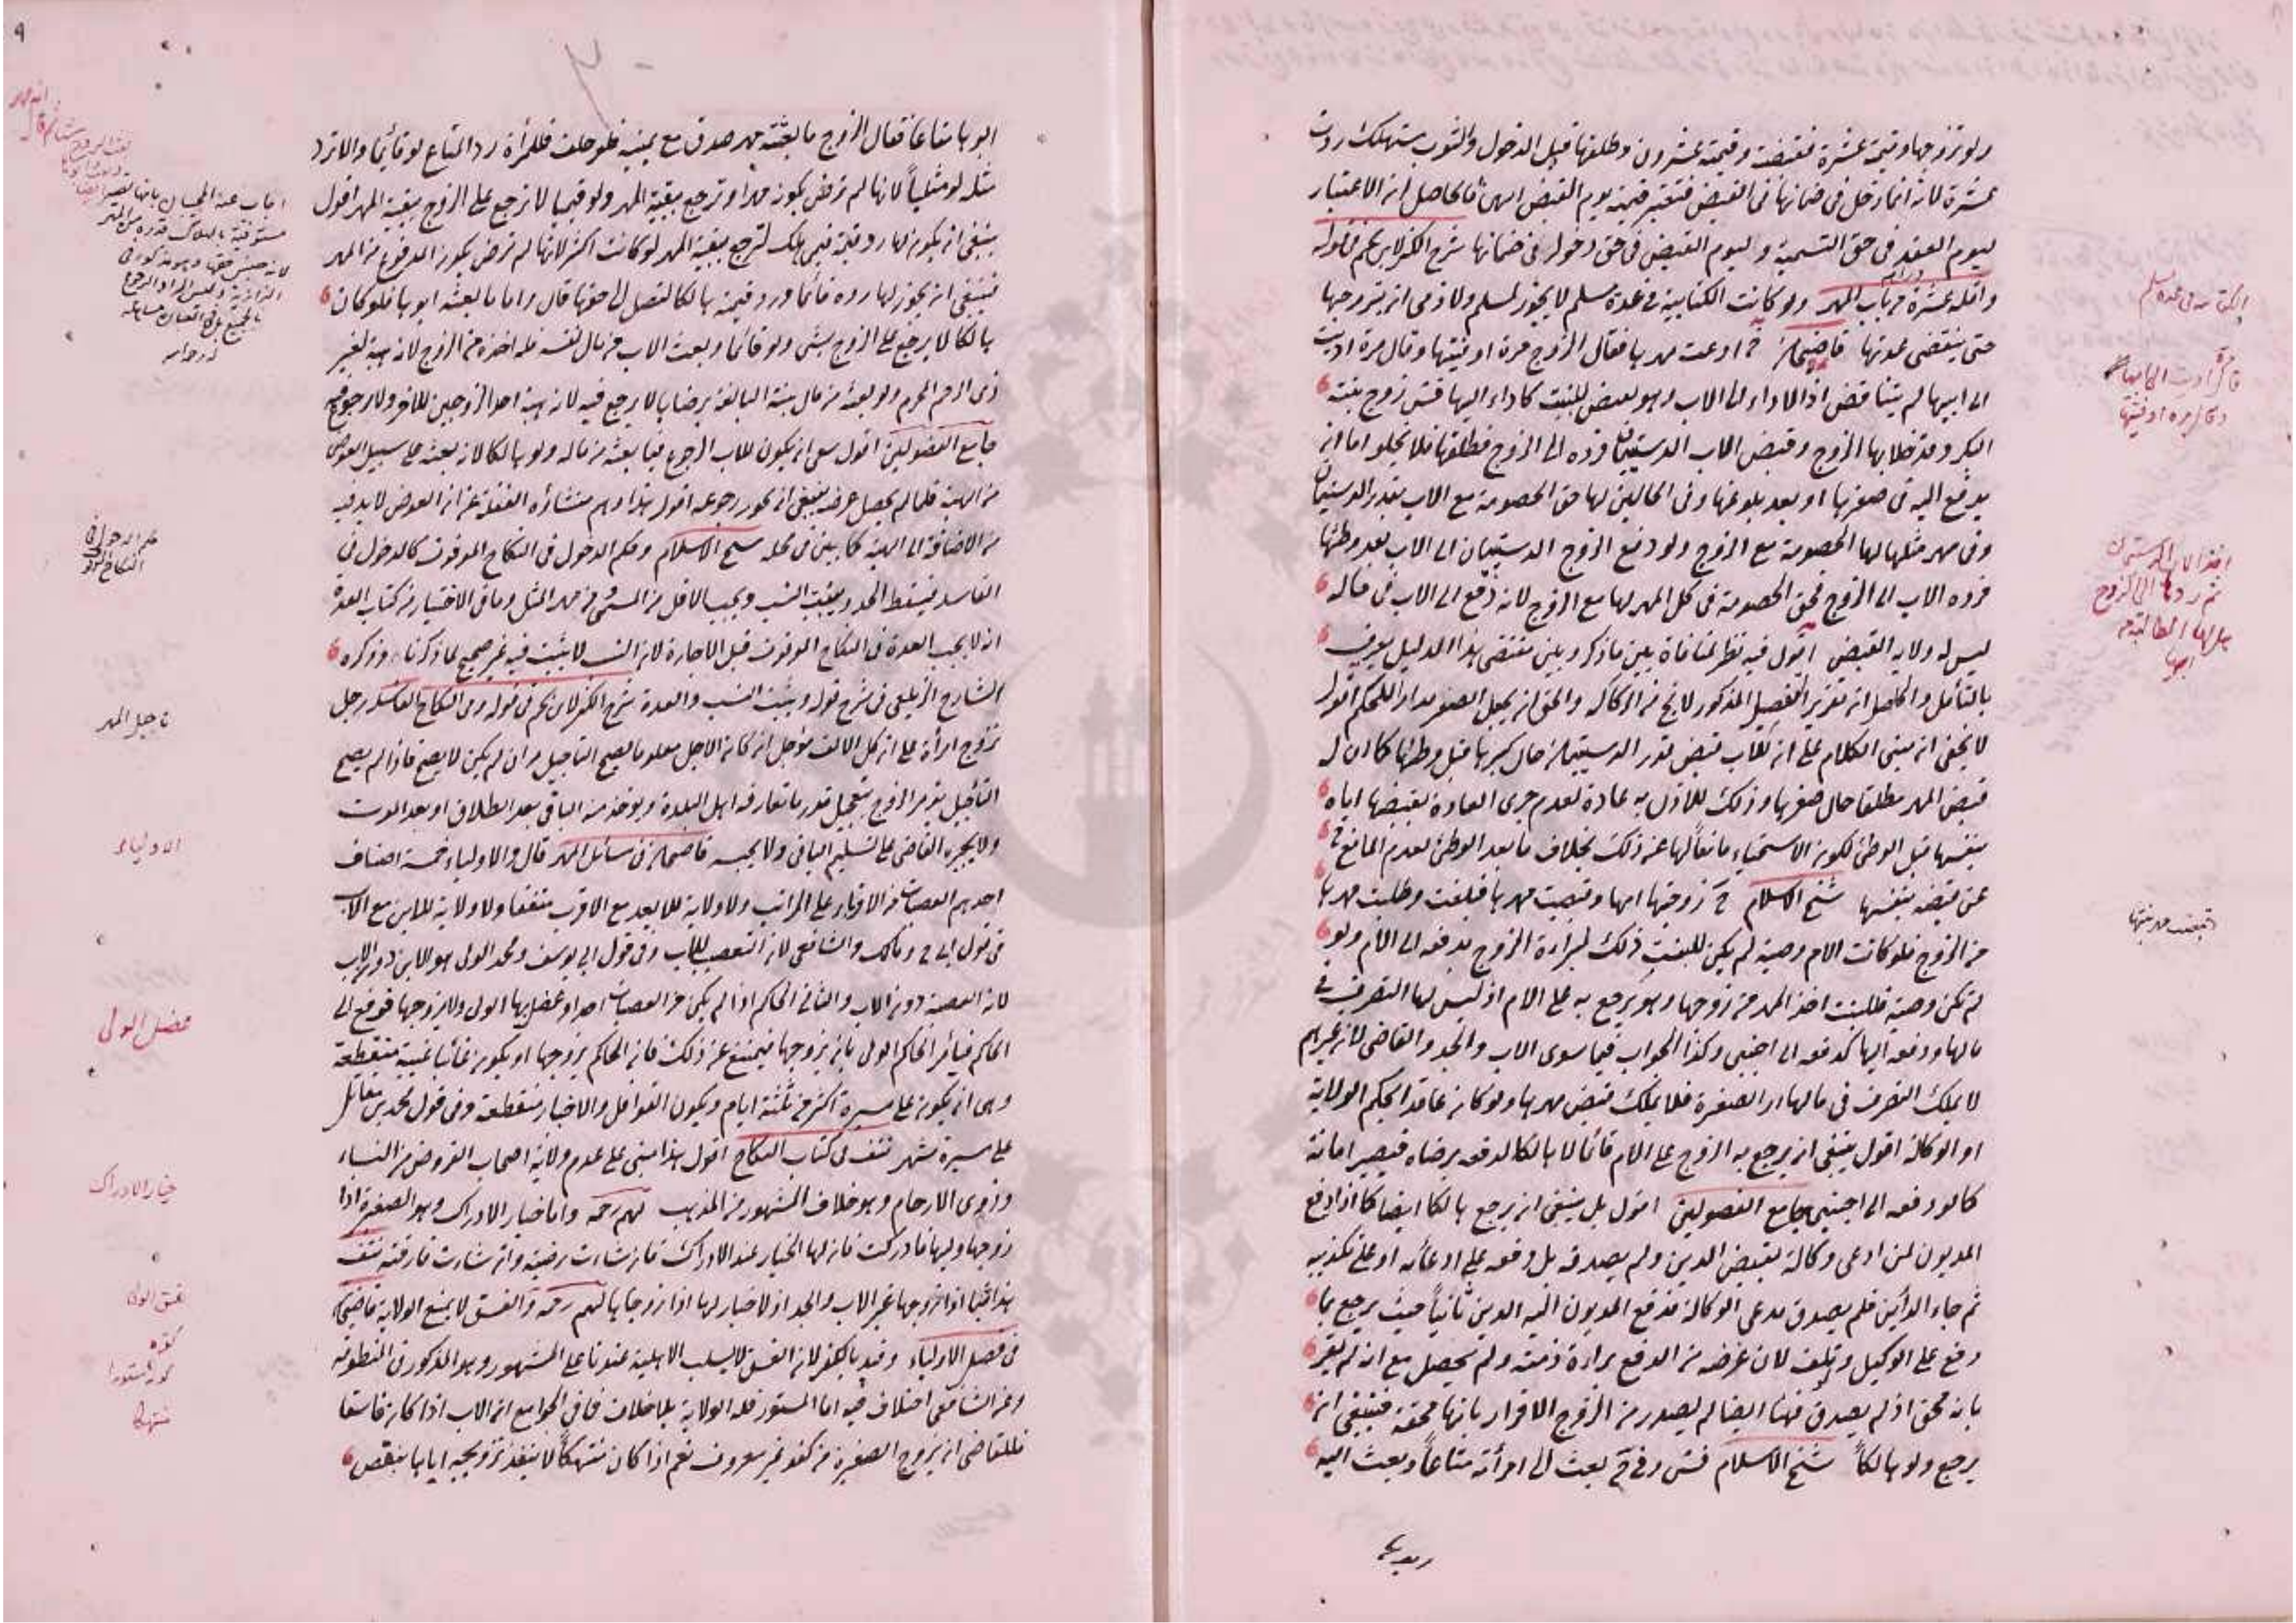 ولو تزوجها وقيمته عشرة فقبضت وقيمته عشرون وطلقها قبل الدخول والثوب مستهلك ردت
عشرة لانه انما دخل في ضمانها في القبض فتعتبر قيمته يوم القبض انتهى فالحاصل ان الاعتبار
ليوم العقد في حق التسمية وليوم القبض في حق دخوله في ضمانها شرح الكنز لابن نجيم في قوله
واقله عشرة دراهم من باب المهر ولو كانت الكتابية في عدة مسلم لا يجوز لمسلم ولا ذمي ان يتزوجها
حتى ينقضي عدتها قاضيخان ادعت مهرها فقال الزوج مرة اوفيتها وقال مرة اديت
الى ابيها لم يتناقض اذ الاداء الى الاب وهو بعض للبنت كاداء اليها زوج بنته
البكر وقد خلا بها الزوج وقبض الاب الدستيمان ورده الى الزوج فطلقها فلا يخلو اما انه
يدفع اليه في صغرها او بعد بلوغها وفي الحالين لها حق الخصومة مع الاب بقدر الدستيمان
وفي مهر مثلها لها الخصومة مع الزوج ولو دفع الزوج الدستيمان الى الاب بعد وطئها
فرده الاب الى الزوج فحق الخصومة في كل المهر لها مع الزوج لانه دفع الى الاب في حالة
ليس له ولاية القبض اقول فيه نظر لمنافاة بين ما ذكر وبين مقتضى هذا الدليل يعرف
بالتأمل والحاصل ان تقرير التفصيل المذكور لا يخ من الركاكة والحق ان يجعل الصغر مدارا للحكم اقول
لا يخفى ان مبنى الكلام على ان للاب قبض قدر الدستيمان حال كبرها قبل وطئها كما ان له
قبض المهر مطلقا حال صغرها وذلك للاذن به عادة لعدم جرى العادة بقبضها اياه
بنفسها قبل الوطئ لكون الاستحياء مانعا لها عن ذلك بخلاف ما بعد الوطئ لعدم المانع
عن قبضه بنفسها شيخ الاسلام زوجتها امها وقبضت مهرها فبلغت وطلبت مهرها
من الزوج فلو كانت الام وصية لم يكن للبنت ذلك لبراءة الزوج بدفعه الى الام ولو
لم تكن وصية فللبنت اخذ المهر من زوجها وهو يرجع به على الام اذ ليس لها التصرف في
مالها ودفعه اليها كدفعه الى اجنبي وكذا الجواب فيما سوى الاب والجد والقاضي لان غيرهم
لا يملك التصرف في مال الصغيرة فلا يملك قبض مهرها ولو كان عاقدا بحكم الولاية
او الوكالة اقول ينبغي ان يرجع به الزوج على الام قائما لا هالكا لدفعه برضاه فيصير امانة
كما لو دفعه الى اجنبي جامع الفصولين اقول بل ينبغي ان يرجع هالكا ايضا كما اذا دفع
المديون لمن ادعى وكالة بقبض الدين ولم يصدقه بل دفعه على ادعائه او على تكذيبه
ثم جاء الدائن فلم يصدق مدعى الوكالة فدفع المديون اليه الدين ثانيا حيث يرجع بما
دفع على الوكيل وتلف لان غرضه من الدفع براءة ذمته ولم يحصل مع انه لم يقر
بانه محق اذ لم يصدق فهنا ايضا لم يصدر من الزوج الاقرار بانها محقة فينبغي ان
يرجع ولو هالكا شيخ الاسلام بعث الى امرأته متاعا وبعث اليه
ابوها متاعا فقال الزوج ما بعثته مهر صدق مع يمينه فلو حلف فللمرأة رد المتاع لو قائما والا ترد
مثله لو مثليا لانها لم ترض بكونه مهرا وترجع ببقية المهر ولو قيميا لا ترجع على الزوج ببقية المهر اقول
ينبغي ان يكون لها رد قيمة فيما هلك لترجع ببقية المهر لو كانت اكثر لانها لم ترض بكون المدفوع من المهر
فينبغي ان يجوز لها رده قائما ورد قيمته هالكا لتصل الى حقها قال واما ما بعثه ابوها فلو كان
هالكا لا يرجع على الزوج بشئ ولو قائما وبعث الاب من مال نفسه فله اخذه من الزوج لانه هبة لغير
ذي الرحم المحرم ولو بعثه من مال بنته البالغة برضاها لا يرجع فيه لانه هبة احد الزوجين للآخر ولا رجوع فيه
جامع الفصولين اقول ان يكون للاب الرجوع فيما بعثه من ماله ولو هالكا لانه بعثه على سبيل العوض
من الهبة فلما لم يحصل عوضه ينبغي ان يجوز رجوعه اقول هذا وهم منشأه الغفلة عن ان العوض لا بد فيه
من الاضافة الى الهبة كما بين في محله شيخ الاسلام وحكم الدخول في النكاح الموقوف كالدخول في
الفاسد فيسقط الحد ويثبت النسب ويجب الاقل من المسمى ومن مهر المثل وما في الاختيار من كتاب العدة
انه لا يجب العدة في النكاح الموقوف قبل الاجازة لان النسب لا يثبت فيه غير صحيح لما ذكرنا وذكره
الشارح الزيلعي في شرح قوله ويثبت النسب والعدة شرح الكنز لابن نجيم في قوله وفي النكاح الفاسد رجل
تزوج امرأة على ان كل الالف مؤجل ان كان الاجل معلوما يصح التأجيل وان لم يكن لا يصح فاذا لم يصح
التأجيل يؤمر الزوج بتعجيل قدر ما تعارفه اهل البلدة ويؤخذ منه الباقي بعد الطلاق او بعد الموت
ولا يجبره القاضي على تسليم الباقي ولا يحبسه قاضيخان في مسائل المهر قال والاولياء خمسة اصناف
احدهم العصبات من الاقرباء على المراتب ولا ولاية للابعد مع الاقرب متفقا ولا ولاية للابن مع الاب
في قول ومالك والشافعي لان التعصيب للاب وفي قول ابي يوسف ومحمد الولي هو الابن دون الاب
لانه العصبة دون الاب والثاني الحاكم اذا لم يكن من العصبات احد او عضل بها الولي ولا يزوجها فترفع الى
الحاكم فيأمر الحاكم الولي بان يزوجها فيمتنع عن ذلك فان الحاكم يزوجها او يكون غائبا غيبة منقطعة
وهي ان يكون على مسيرة اكثر من ثلثة ايام ويكون القوافل والاخبار منقطعة وفي قول محمد بن مقاتل
على مسيرة شهر نتف في كتاب النكاح اقول هذا مبنى على عدم ولاية اصحاب الفروض من النساء
وذوي الارحام وهو خلاف المشهور من المذهب واما خيار الادراك وهو الصغيرة اذا
زوجها وليها فادركت فان لها الخيار عند الادراك فان شاءت رضيت وان شاءت فارقته نتف
هذا فيما اذا زوجها غير الاب والجد اذ لا خيار لها اذا زوجاها والفسق لا يمنع الولاية قاضيخان
في فصل الاولياء وقيد بالكفر لان الفسق لا يسلب الاهلية عندنا على المشهور وهو المذكور في المنظومة
وعن الشافعي اختلاف فيه اما المستور فله الولاية بلا خلاف فما في الجوامع ان الاب اذا كان فاسقا
فللقاضي ان يزوج الصغيرة من كفو غير معروف نعم اذا كان متهتكا لا ينفذ تزويجه اياها بنقص
تأجيل المهر
الاولياء
عضل الولي
خيار الادراك
فسق الولي